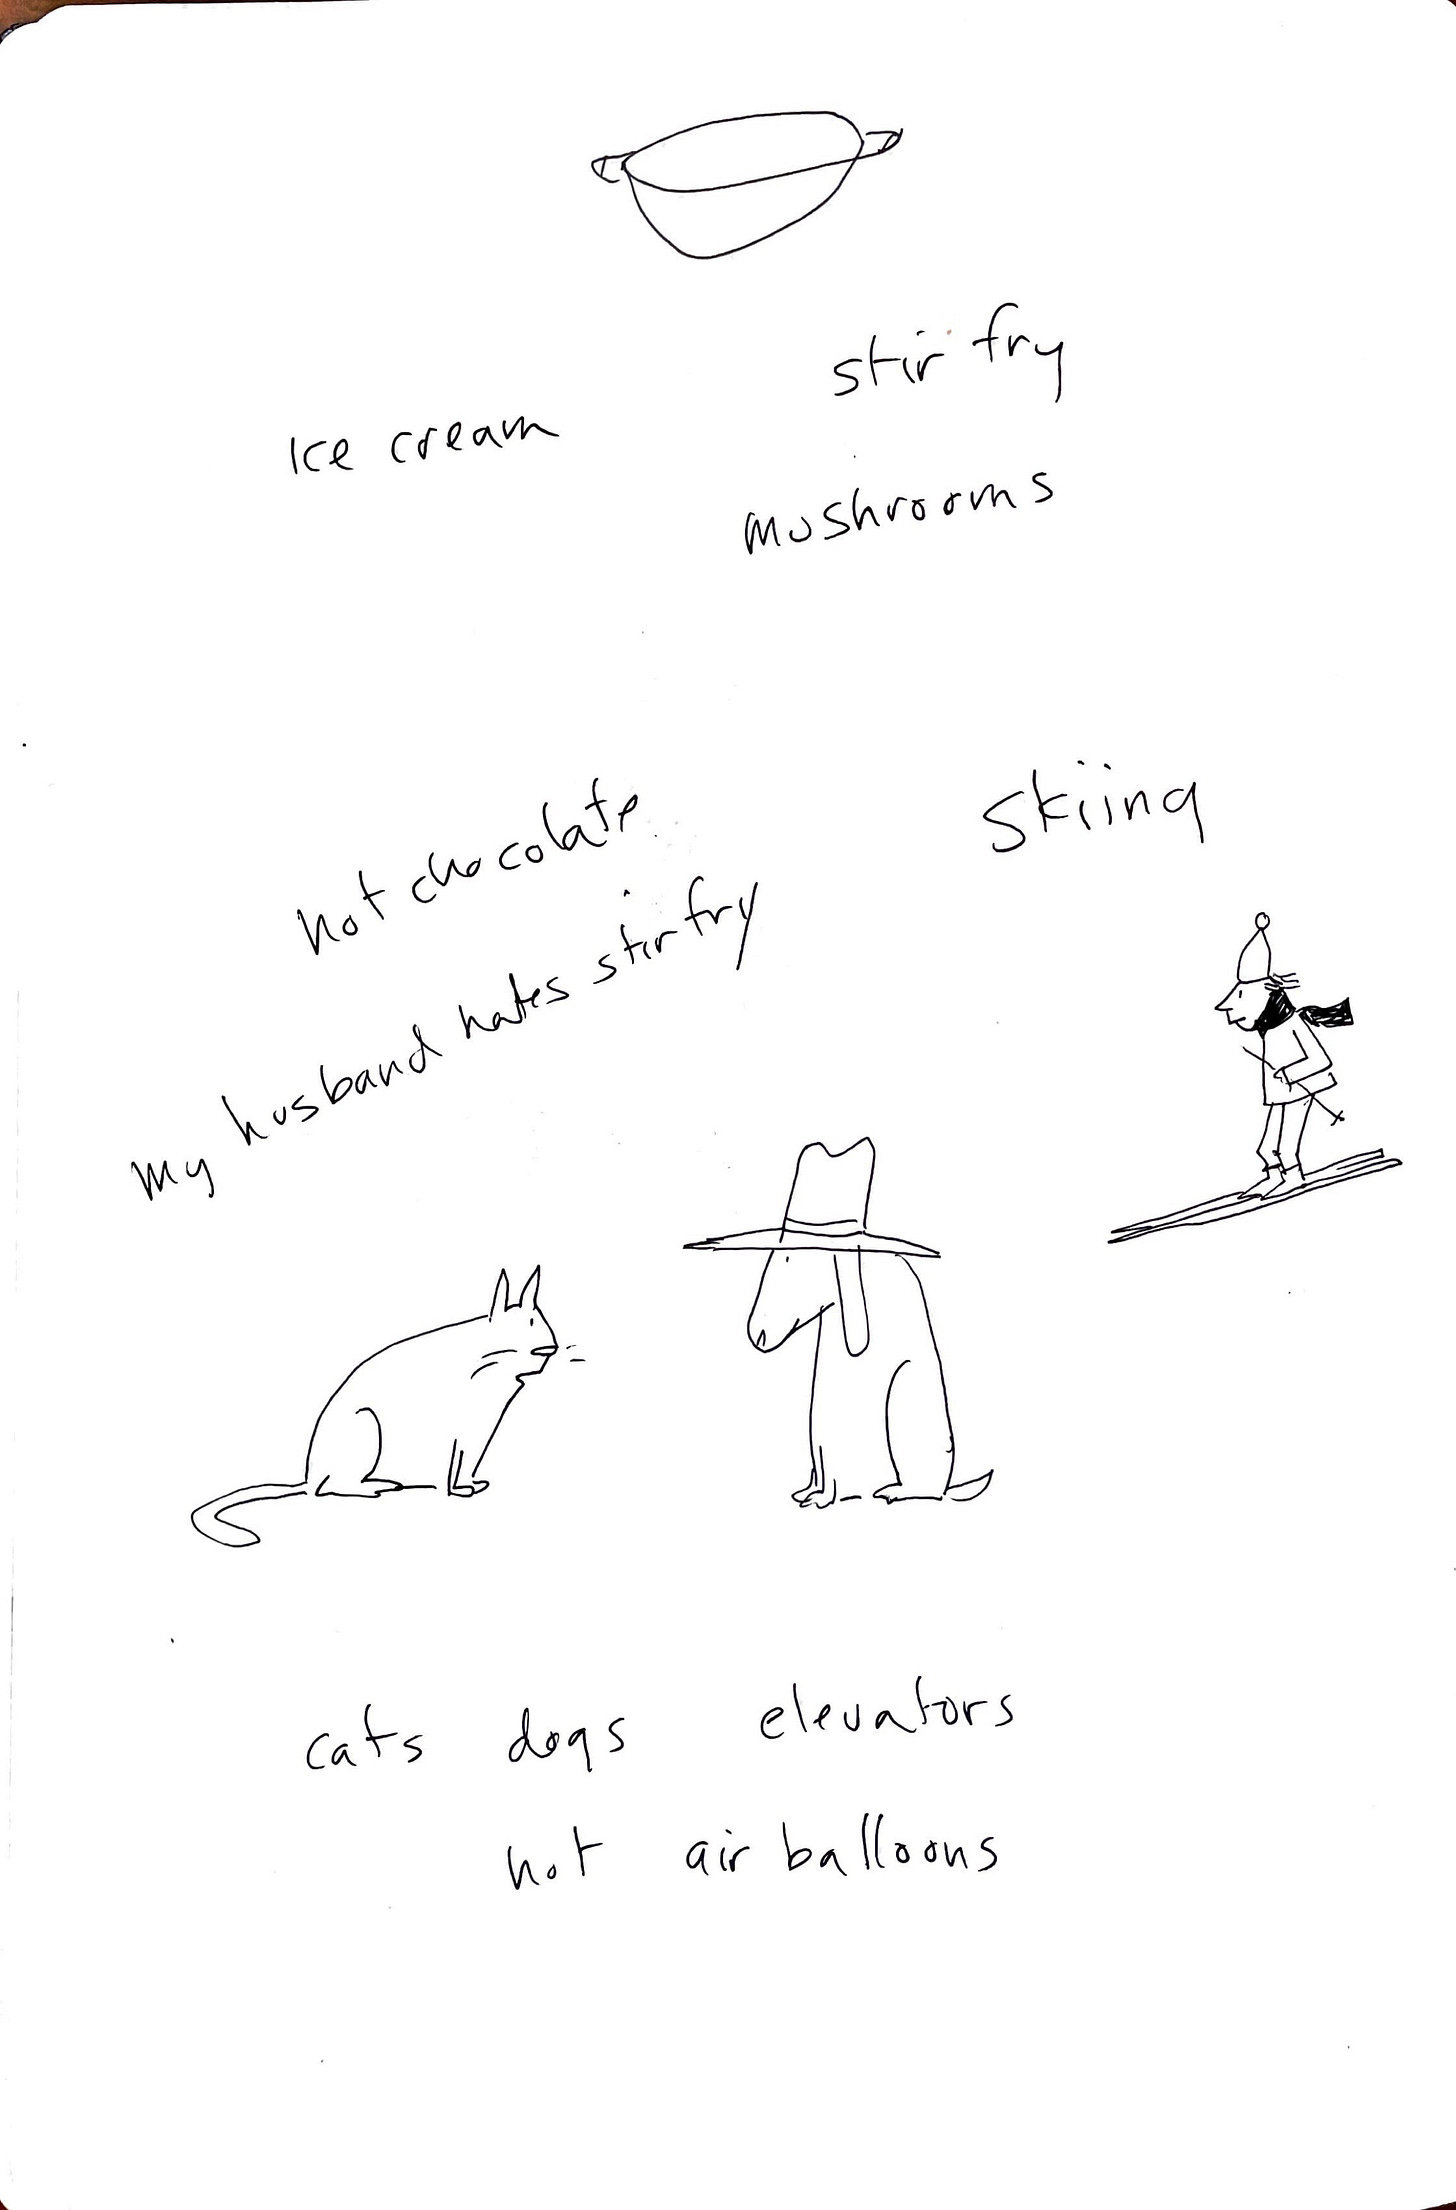 stir fry
Ice cream
mushrooms
skiing
hot chocolate
my husband hates stir fry
cats dogs elevators
hot air balloons